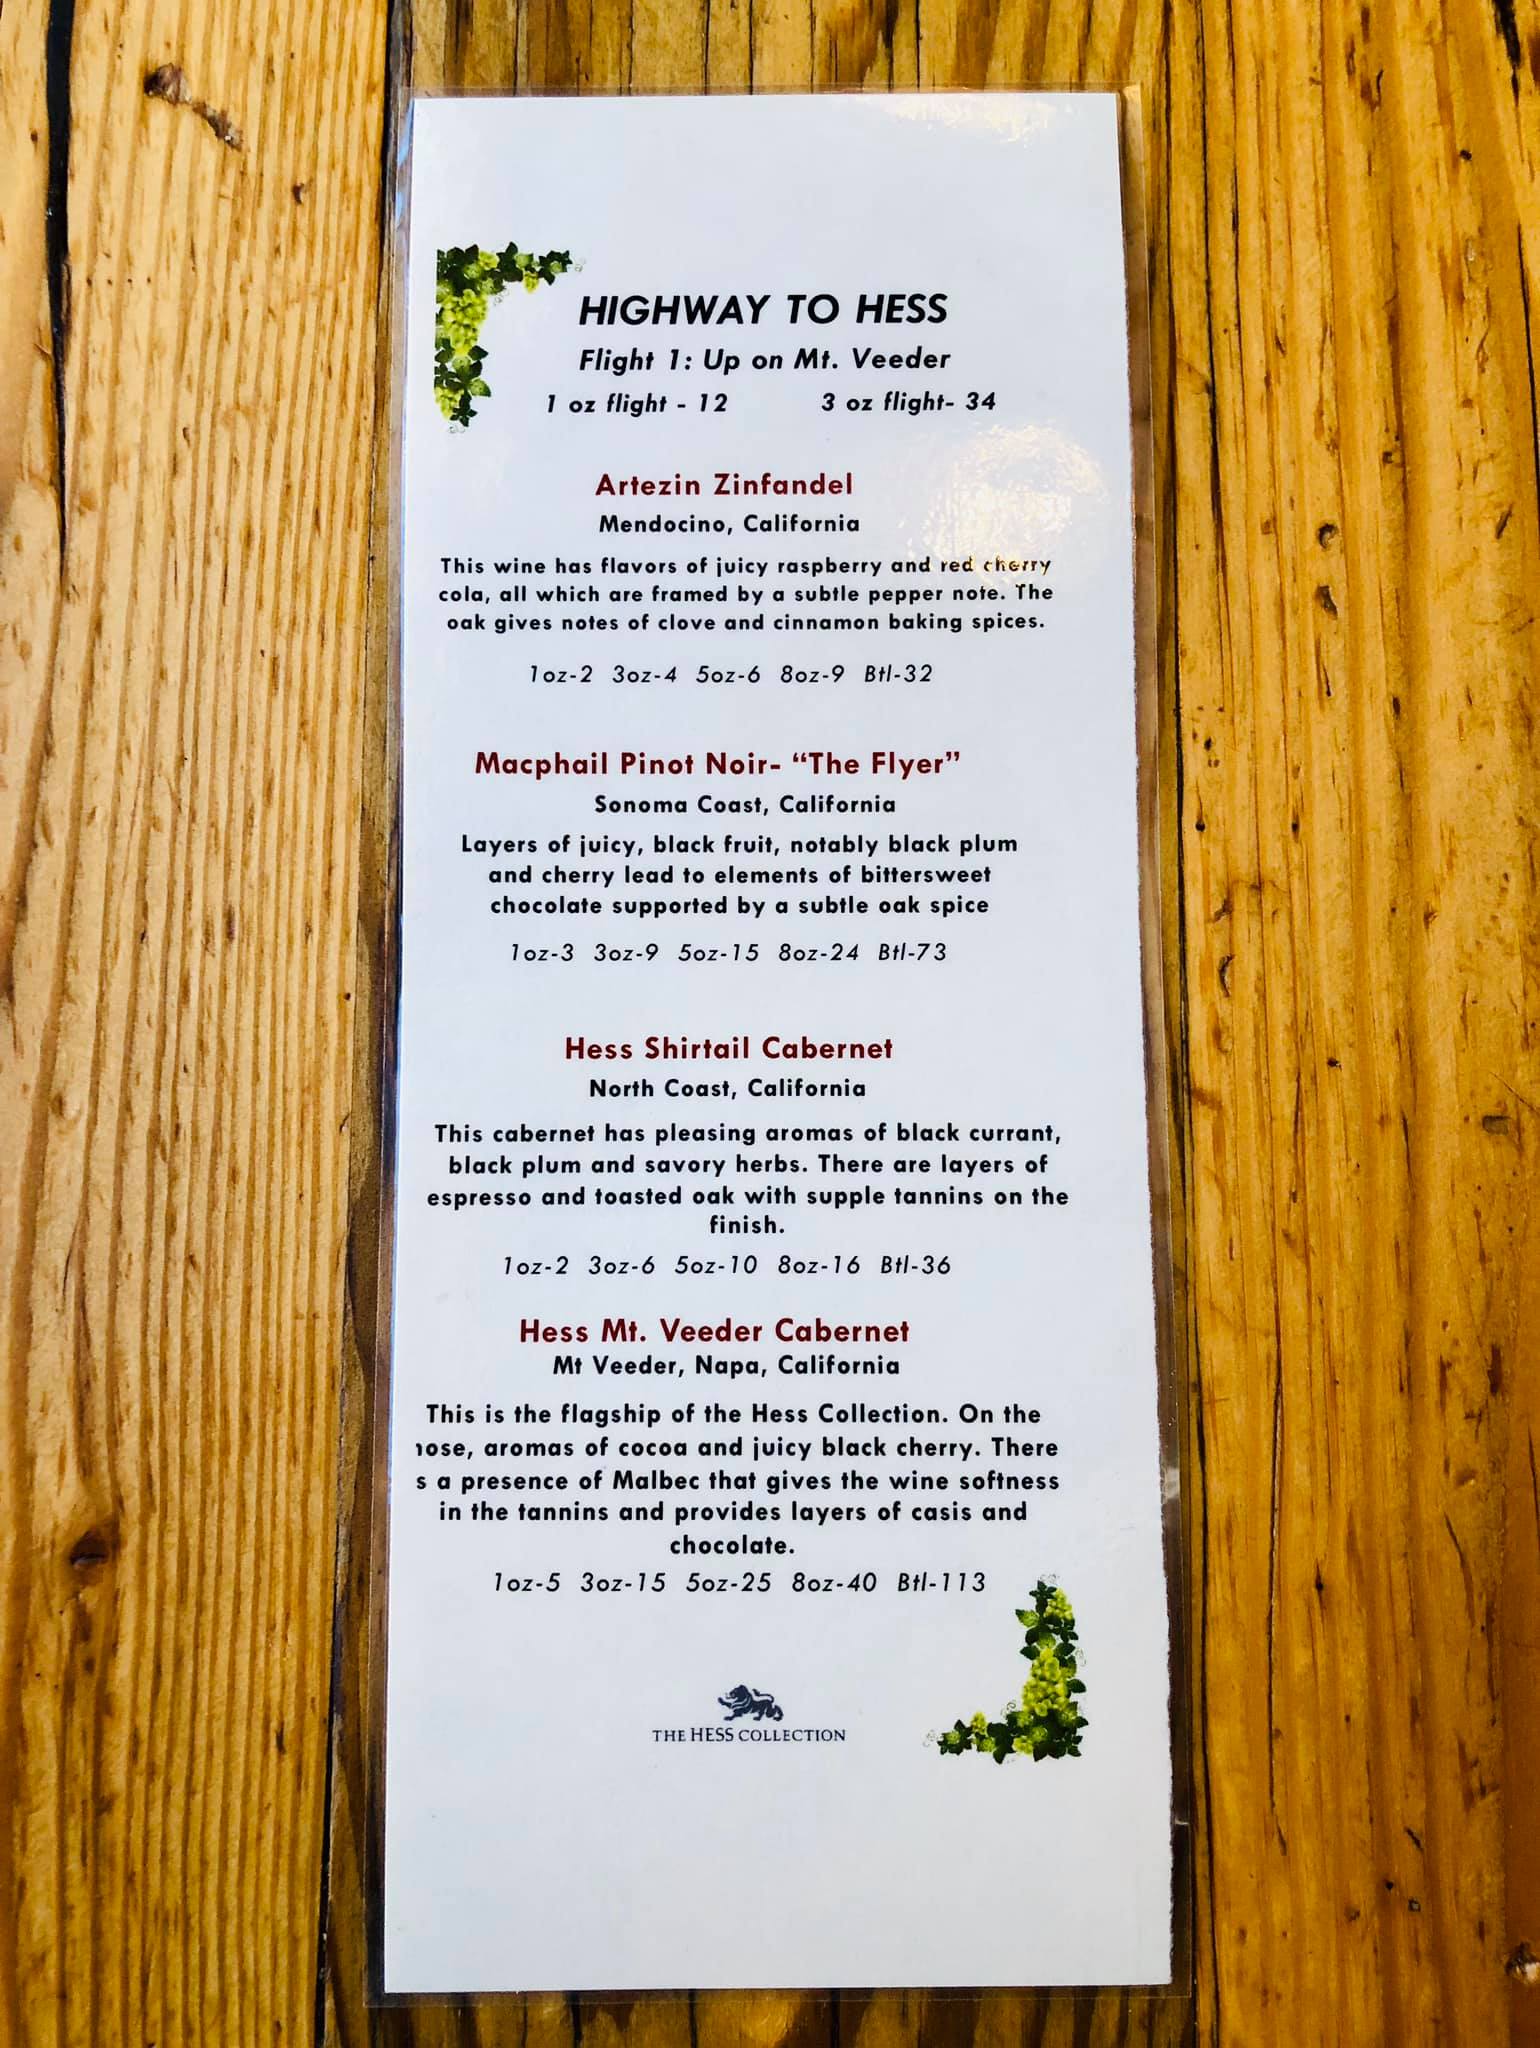 HIGHWAY TO HESS
Flight 1: Up on Mt. Veeder
1 oz flight - 12 3 oz flight- 34
Artezin Zinfandel
Mendocino, California
This wine has flavors of juicy raspberry and red cherry
cola, all which are framed by a subtle pepper note. The
oak gives notes of clove and cinnamon baking spices.
1oz-2 3oz-4 5oz-6 8oz-9 Btl-32
Macphail Pinot Noir- “The Flyer”
Sonoma Coast, California
Layers of juicy, black fruit, notably black plum
and cherry lead to elements of bittersweet
chocolate supported by a subtle oak spice
1oz-3 3oz-9 5oz-15 8oz-24 Btl-73
Hess Shirtail Cabernet
North Coast, California
This cabernet has pleasing aromas of black currant,
black plum and savory herbs. There are layers of
espresso and toasted oak with supple tannins on the
finish.
1oz-2 3oz-6 5oz-10 8oz-16 Btl-36
Hess Mt. Veeder Cabernet
Mt Veeder, Napa, California
This is the flagship of the Hess Collection. On the
nose, aromas of cocoa and juicy black cherry. There
s a presence of Malbec that gives the wine softness
in the tannins and provides layers of casis and
chocolate.
1oz-5 3oz-15 5oz-25 8oz-40 Btl-113
THE HESS COLLECTION